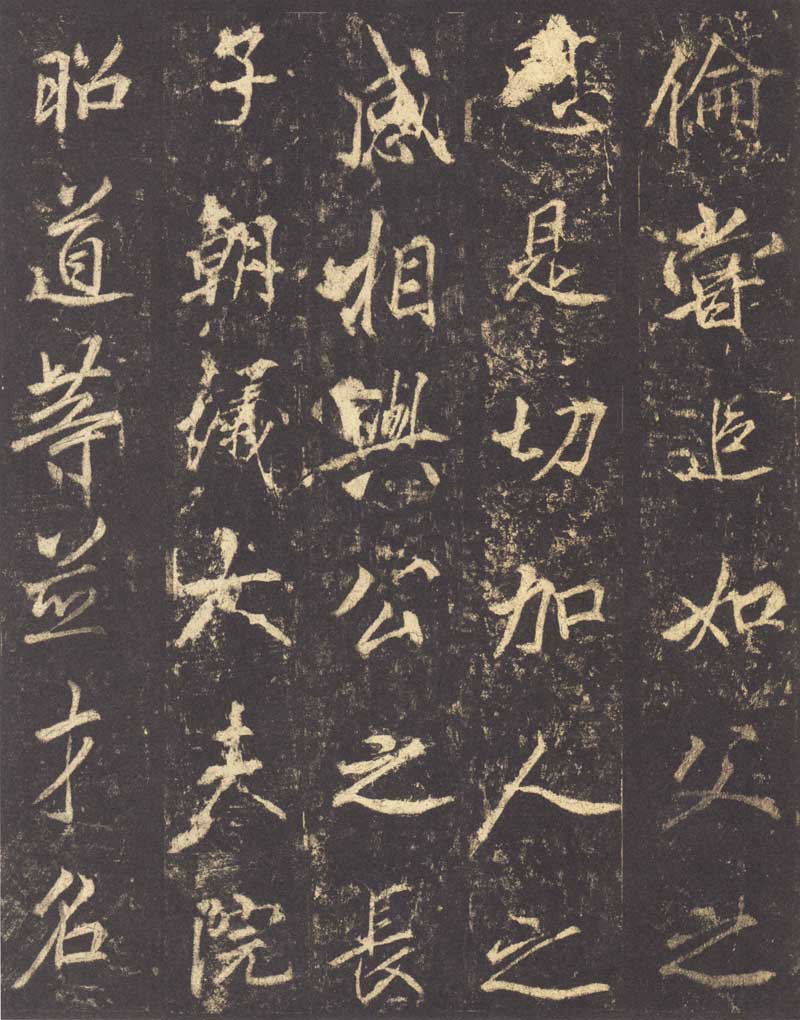 倫嘗追如父之
慈是切加人之
感相與公之長
子朝議大夫院
昭道等並才名